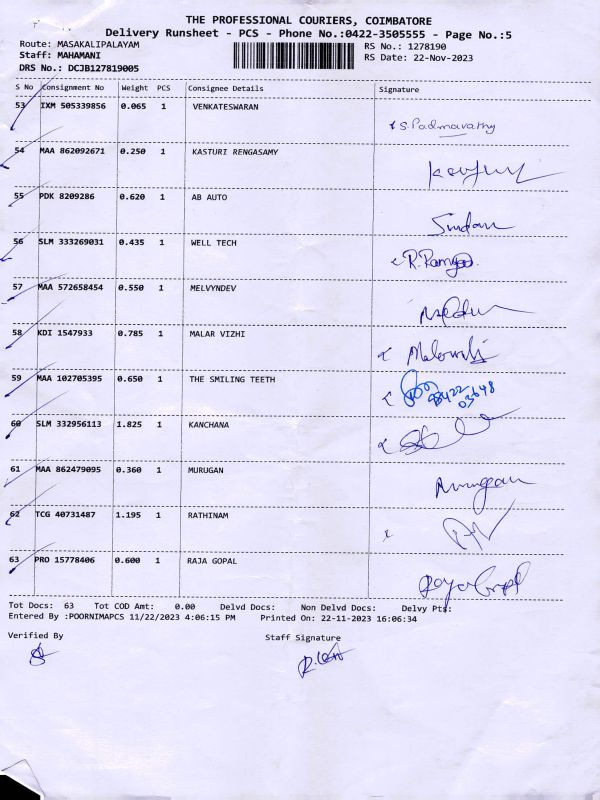 THE PROFESSIONAL COURIERS, COIMBATORE
Delivery Runsheet - PCS - Phone No.:0422-3505555 - Page No.:5
Route: MASAKALIPALAYAM RS No.: 1278190
Staff: MAHAMANI RS Date: 22-Nov-2023
DRS No.: DCJB127819005
S No Consignment No Weight PCS Consignee Details Signature
53 IXM 505339856 0.065 1 VENKATESWARAN
S. Padmavathy
54 MAA 862092671 0.250 1 KASTURI RENGASAMY
55 PDK 8209286 0.620 1 AB AUTO
56 SLM 333269031 0.435 1 WELL TECH
57 MAA 572658454 0.550 1 MELVYNDEV
58 KDI 1547933 0.785 1 MALAR VIZHI
59 MAA 102705395 0.650 1 THE SMILING TEETH
98422
03648
60 SLM 332956113 1.825 1 KANCHANA
61 MAA 862479095 0.360 1 MURUGAN
Murugan
62 TCG 40731487 1.195 1 RATHINAM
63 PRO 15778406 0.600 1 RAJA GOPAL
Tot Docs: 63 Tot COD Amt: 0.00 Delvd Docs: Non Delvd Docs: Delvy Pts:
Entered By :POORNIMAPCS 11/22/2023 4:06:15 PM Printed On: 22-11-2023 16:06:34
Verified By Staff Signature